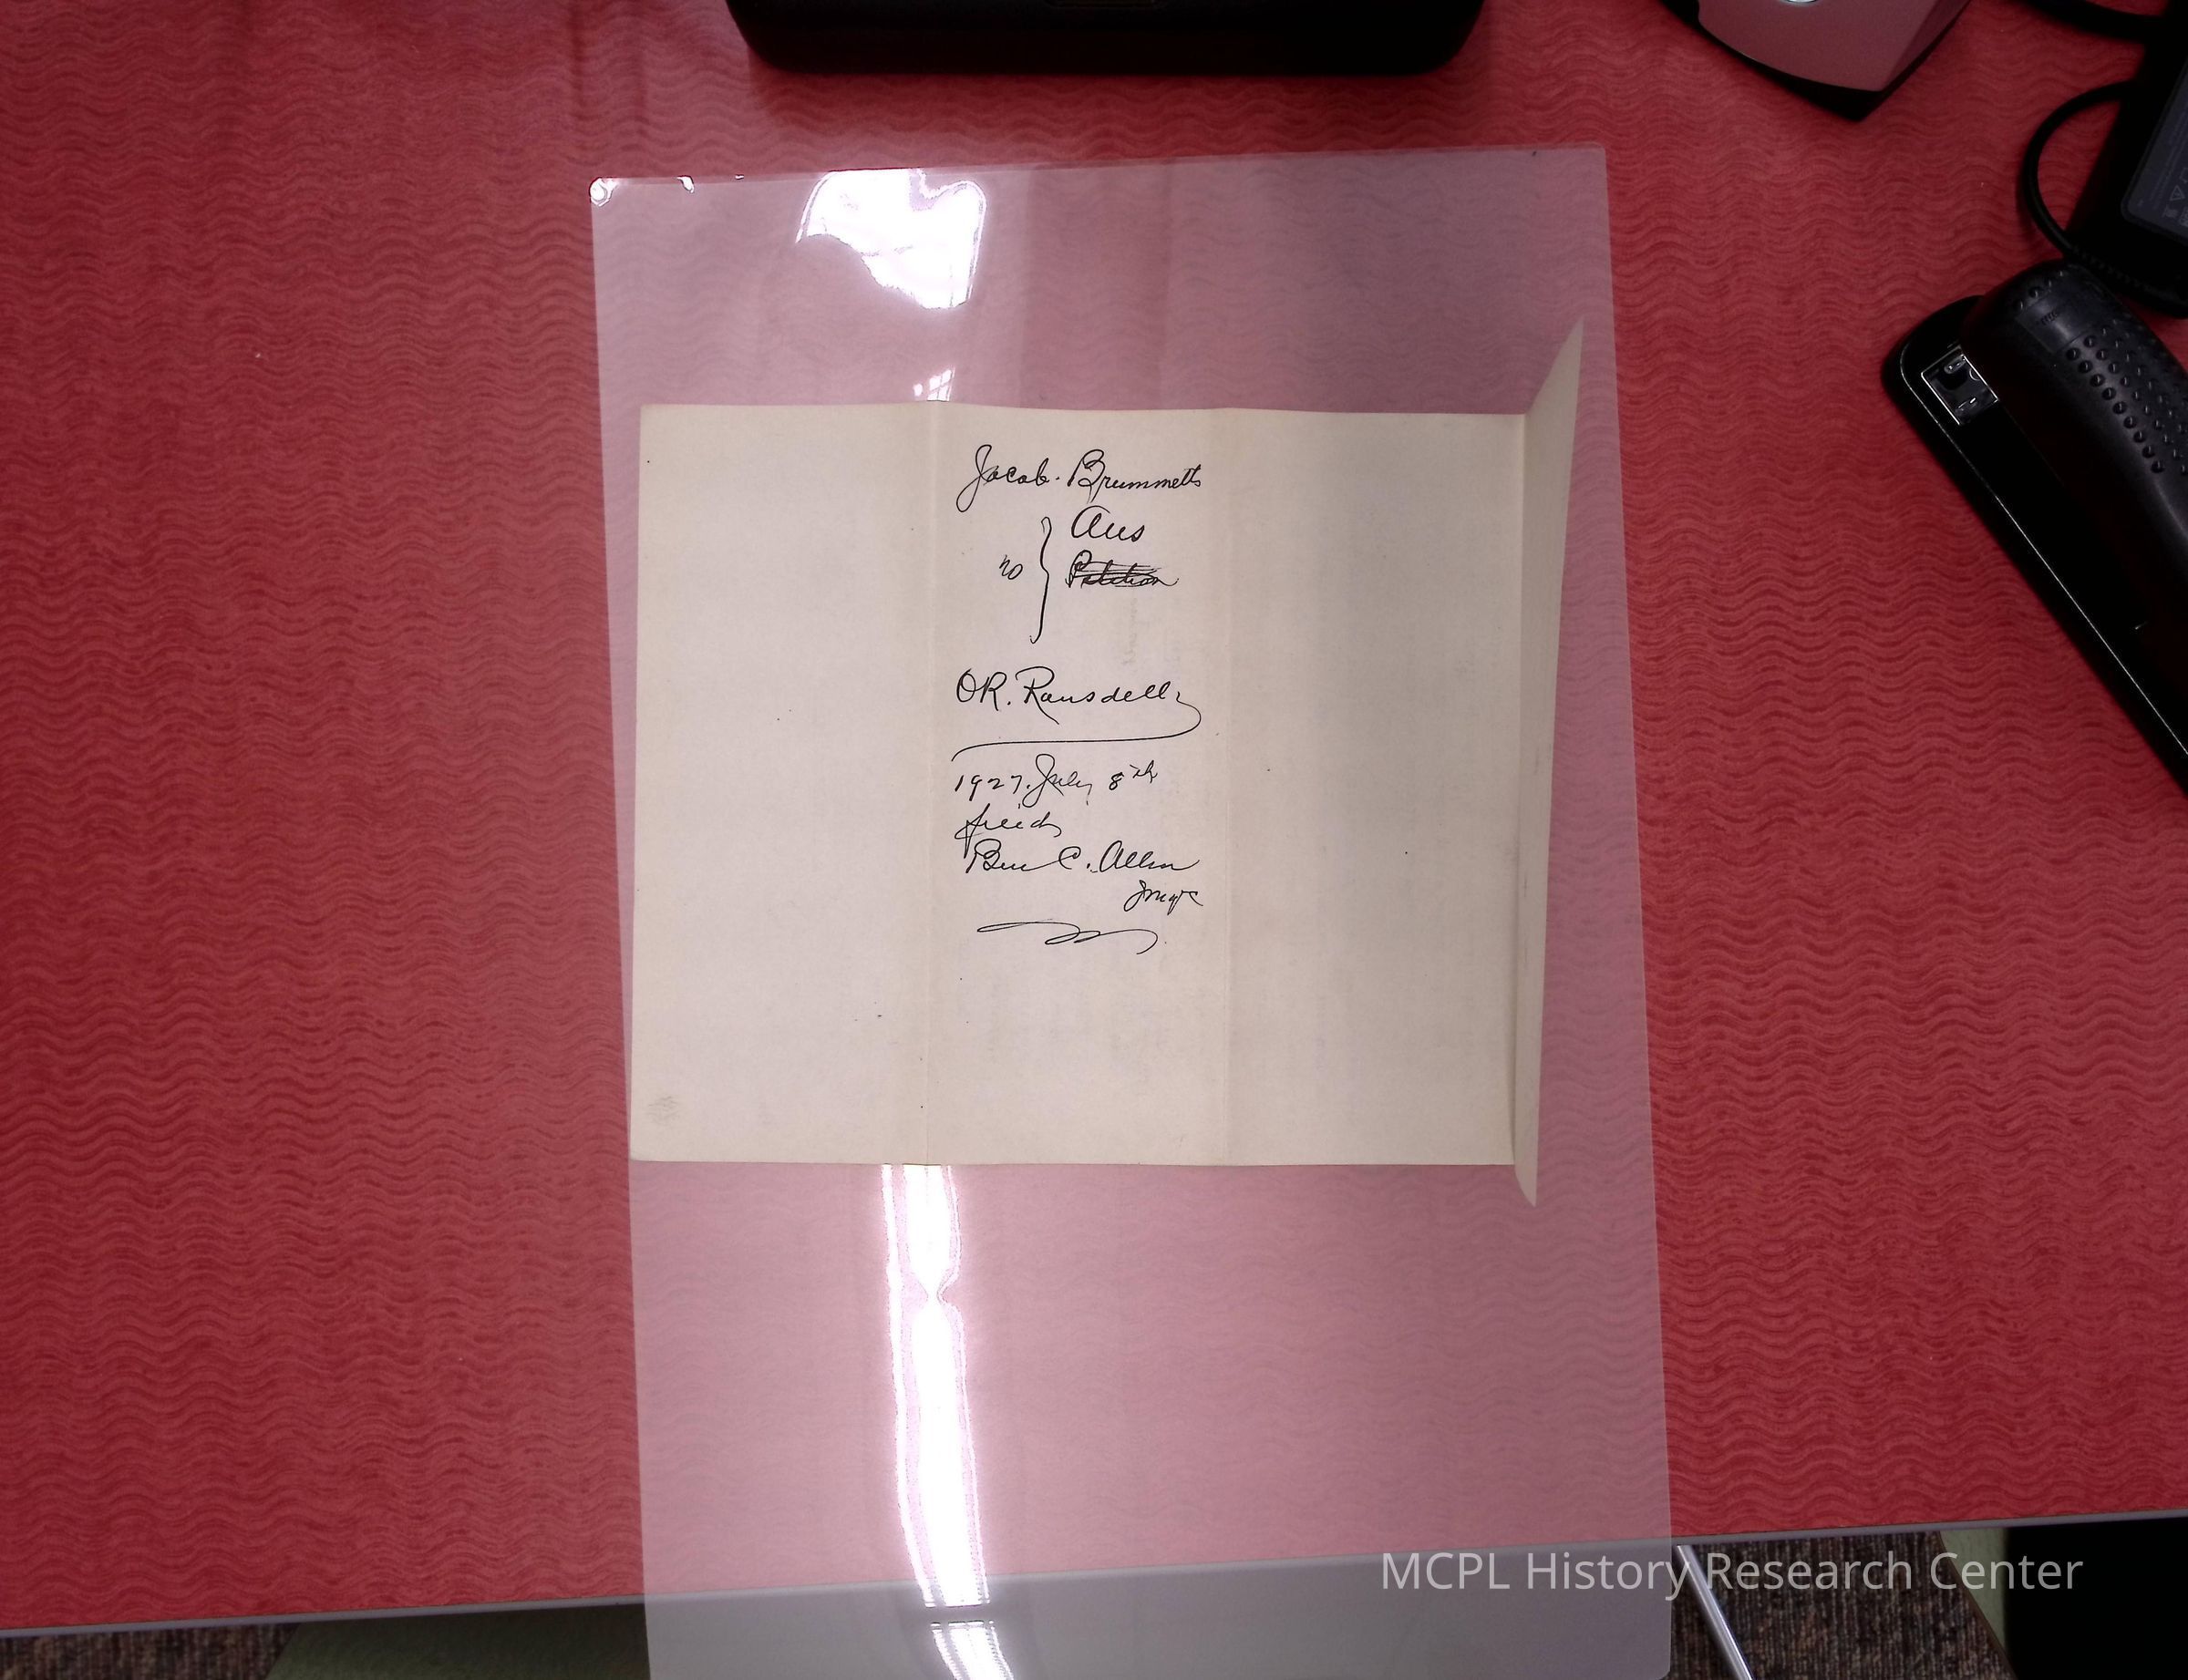 Jacob. Brummetts
Ans
vs
Petition
OR. Ransdell
1927. July 8th
filed
Ben C. Allin
MCPL History Research Center